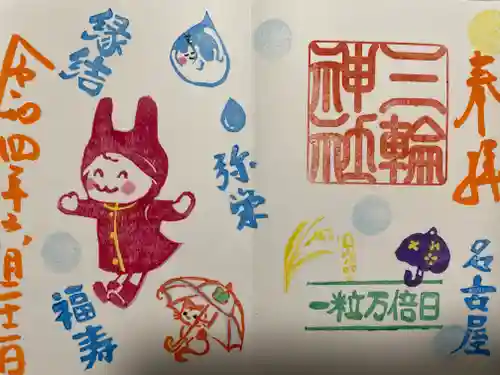 奉拝
三輪
神社
名古屋
一粒万倍日
弥栄
縁結
福寿
令和四年六月二十一日